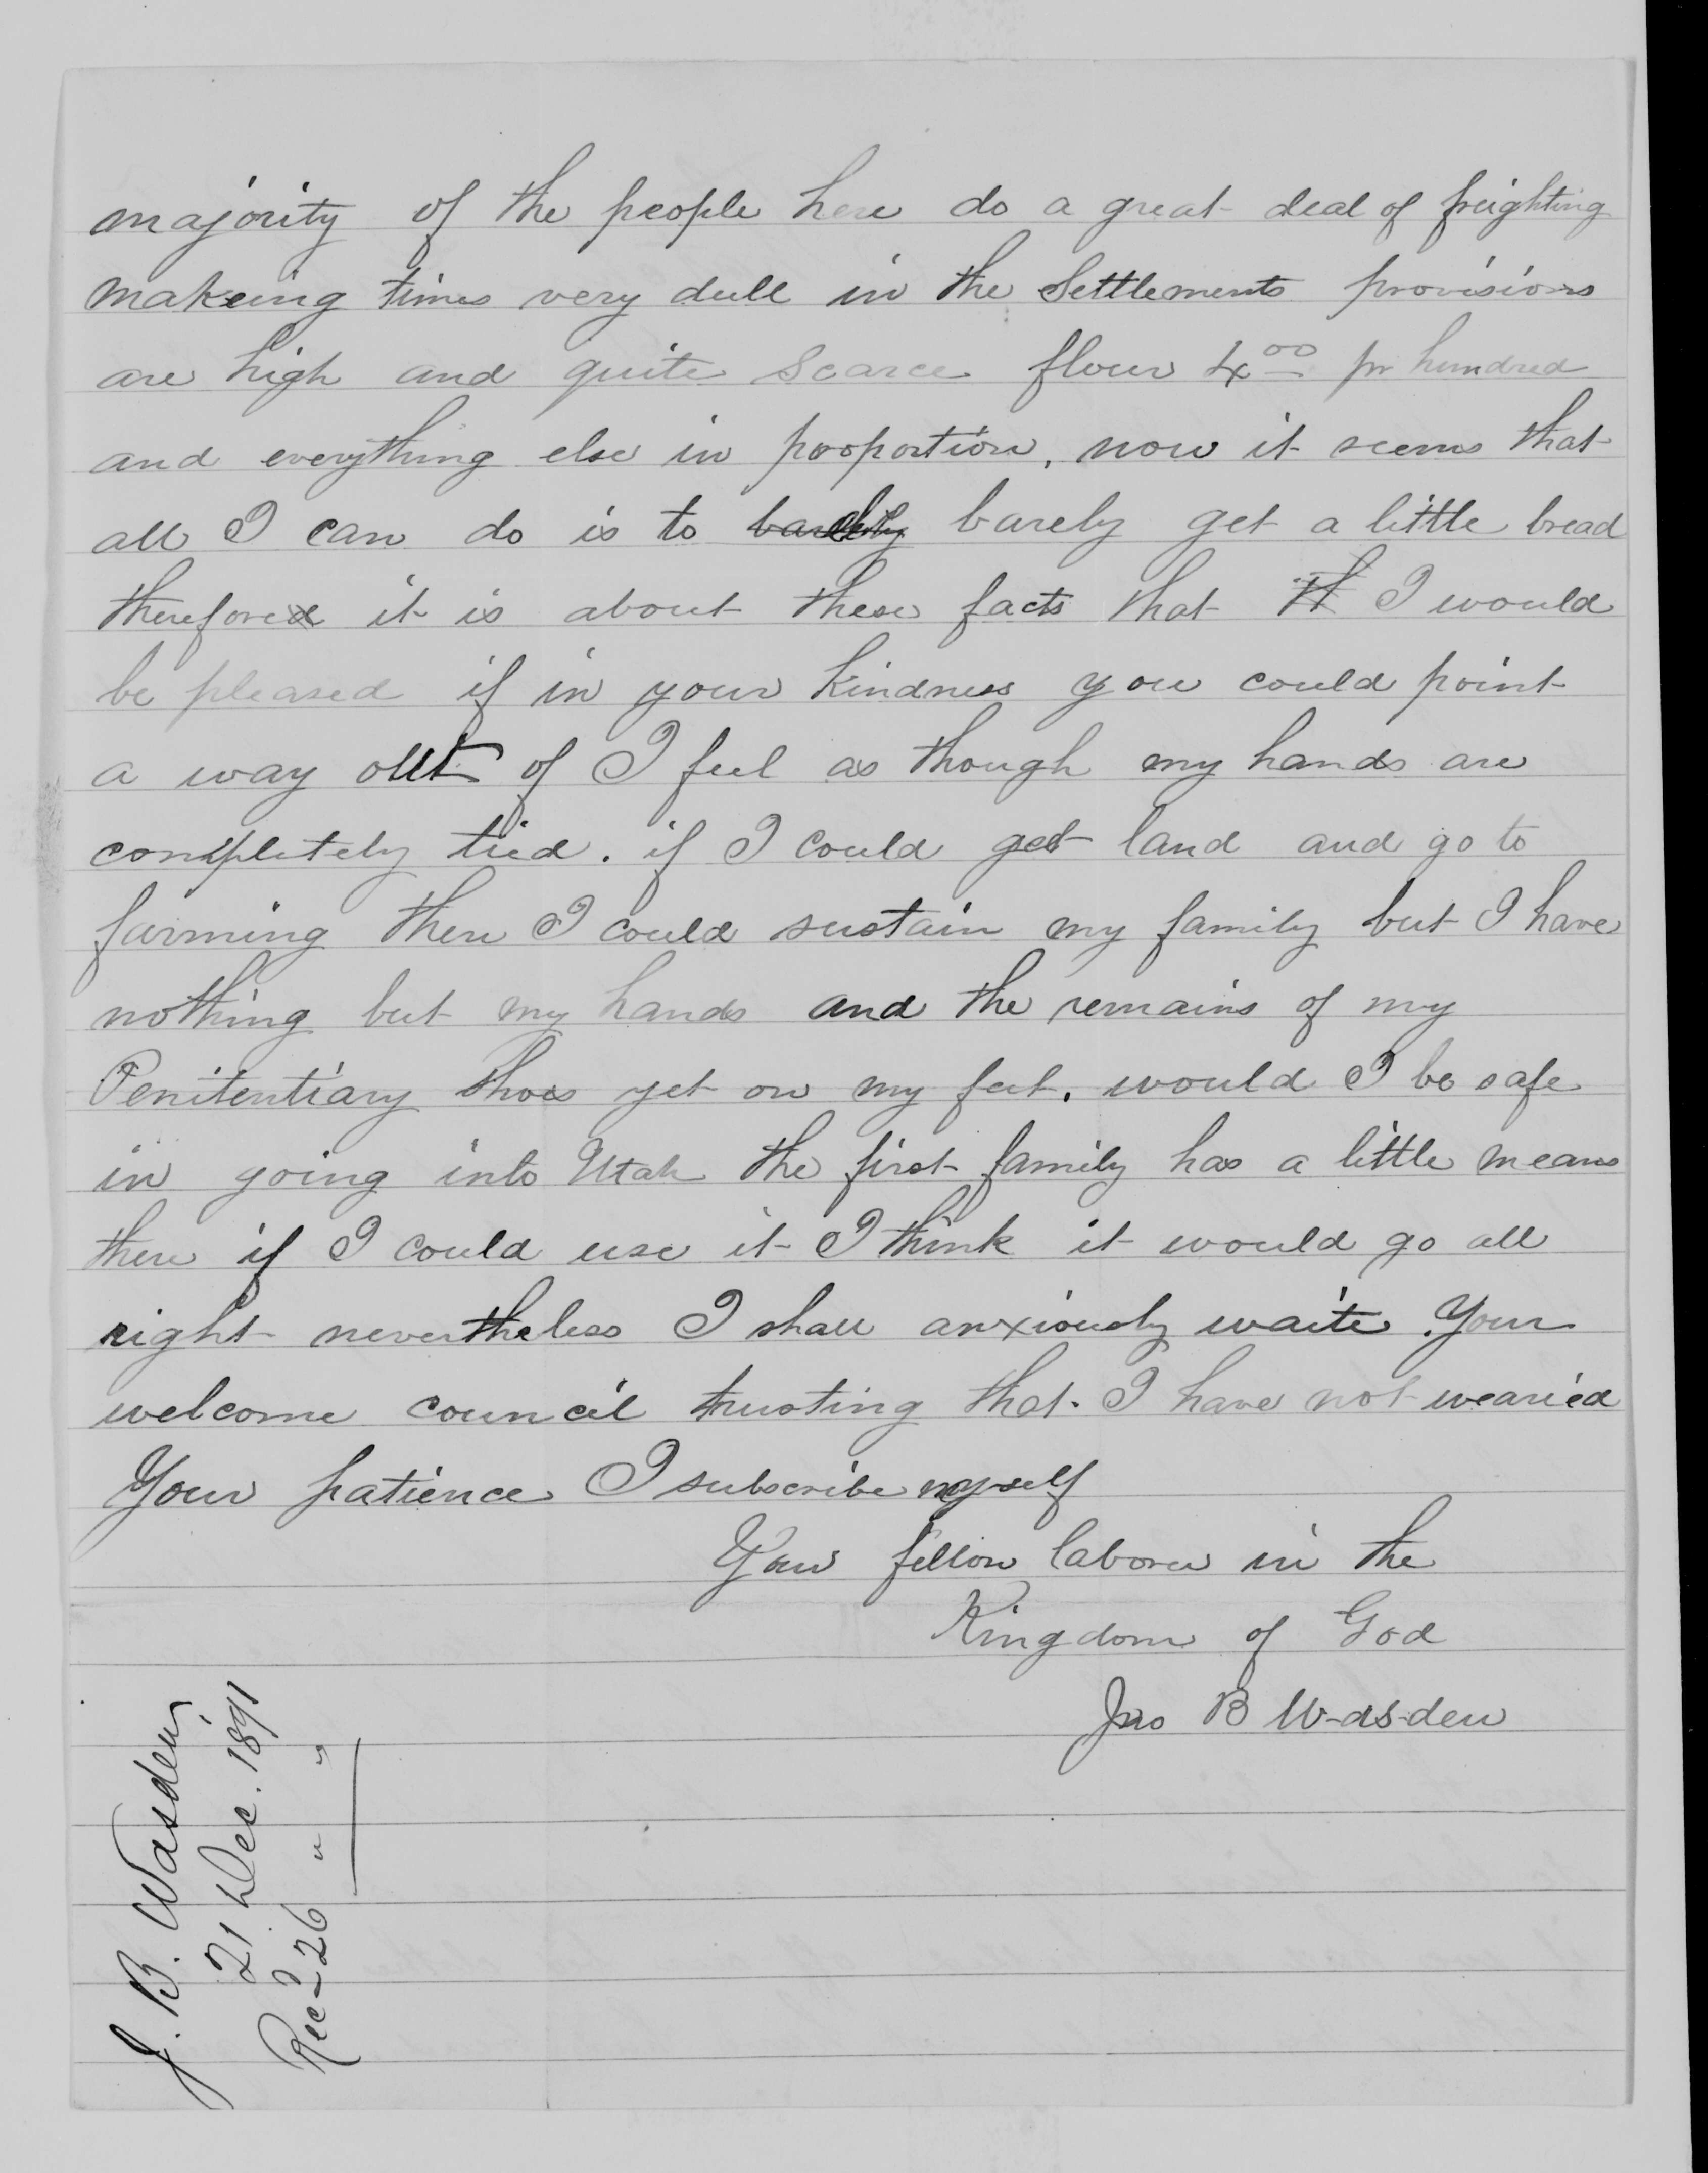 majority of the people here do a great deal of freighting
makeing times very dull in the Settlements provisions
are high and quite Scarce flour 4⁰⁰ pr hundred
and everything else in proportion, now it seems that
all I can do is to barely get a little bread
therefore it is about these facts that I would
be pleased if in your Kindness you could point
a way out of I feel as though my hands are
completely tied. if I could get land and go to
farming then I could sustain my family but I have
nothing but my hands and the remains of my
Penitentiary shoes yet on my feet. would I be safe
in going into Utah the first family has a little means
there if I could use it I think it would go all
right nevertheless I shall anxiously waite Your
welcome council trusting that I have not wearied
Your patience I subscribe myself
Your fellow laborer in the
Kingdom of God
Jno B Wasden
J. B. Wasden,
21 Dec. 1891
Rec'd 26 " "